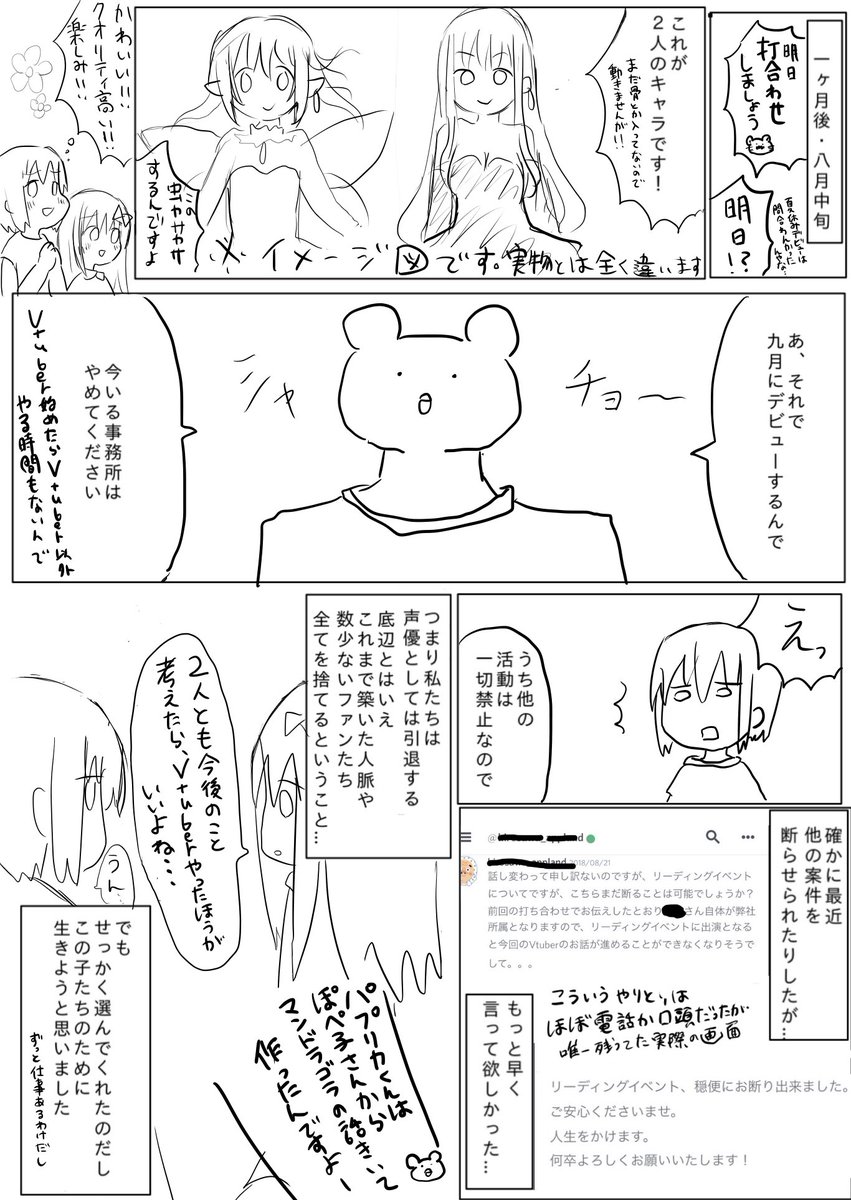 一ヶ月後・八月中旬
明日
打合わせ
しましょう
夏休みデビューは
間に合わんかった
明日!?
これが
2人のキャラです!
まだ骨とか入ってないので
動きませんが!!
この
虫ヤサカサ
するんですよ
※イメージ図です。実物とは全く違います
かわいい!!
クオリティ高い!!
楽しみ!!
あ、それで
九月にデビューするんで
チョー
シャ
今いる事務所は
やめてください
Vtuber始めたらVtuber以外
やる時間もないんで
えっ
うち他の
活動は
一切禁止なので
つまり私たちは
声優としては引退する
底辺とはいえ
これまで築いた人脈や
数少ないファンたち
全てを捨てるということ…
2人とも今後のこと
考えたら、Vtuberやったほうが
いいよね…
うん
確かに最近
他の案件を
断らせられたりしたが…
2018/08/21
話し変わって申し訳ないのですが、リーディングイベント
についてですが、こちらまだ断ることは可能でしょうか?
前回の打ち合わせでお伝えしたとおり
さん自体が弊社
所属となりますので、リーディングイベントに出演となる
と今回のVtuberのお話が進めることができなくなりそうで
して。。。
こういうやりとりは
ほぼ電話か口頭だったが
唯一残ってた実際の画面
もっと早く
言って欲しかった…
リーディングイベント、穏便にお断り出来ました。
ご安心くださいませ。
人生をかけます。
何卒よろしくお願いいたします!
パプリカくんは
ぽぺ子さんから
マンドラゴラの話きいて
作ったんですよー
でも
せっかく選んでくれたのだし
この子たちのために
生きようと思いました
ずっと仕事あるわけだし